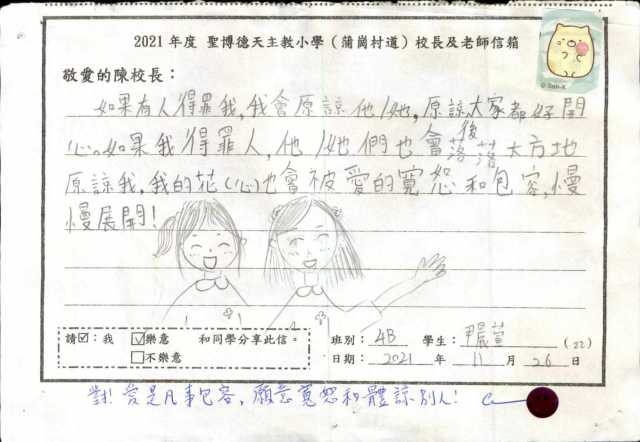 2021 年度 聖博德天主教小學（蒲崗村道）校長及老師信箱
敬愛的陳校長：
如果有人得罪我,我會原諒他/她,原諒大家都好開
心。如果我得罪人,他/她們也會後落落大方地
原諒我,我的花(心)也會被愛的寬恕和包容,慢
慢展開!
請☑：我 ☑樂意 和同學分享此信。 班別： 4B 學生： 尹晨萱 (22)
□不樂意 日期： 2021 年 11 月 26 日
對! 愛是凡事包容, 願意寬恕和體諒別人!